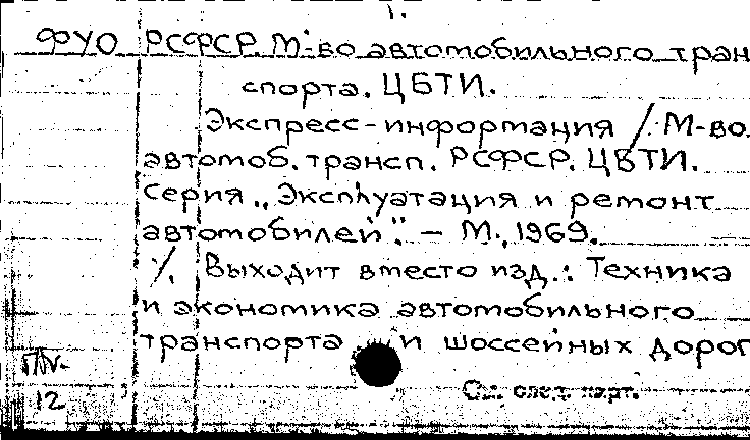 1.
ФУО РСФСР. М-во автомобильного тран
спорта. ЦБТИ.
Экспресс-информация /: М-во.
автомоб. трансп. РСФСР. ЦБТИ.
Серия „Эксплуатация и ремонт
автомобилей". – М., 1969.
Выходит вместо изд.: Техника
и экономика автомобильного
транспорта и шоссейных дорог
См. след. карт.
12